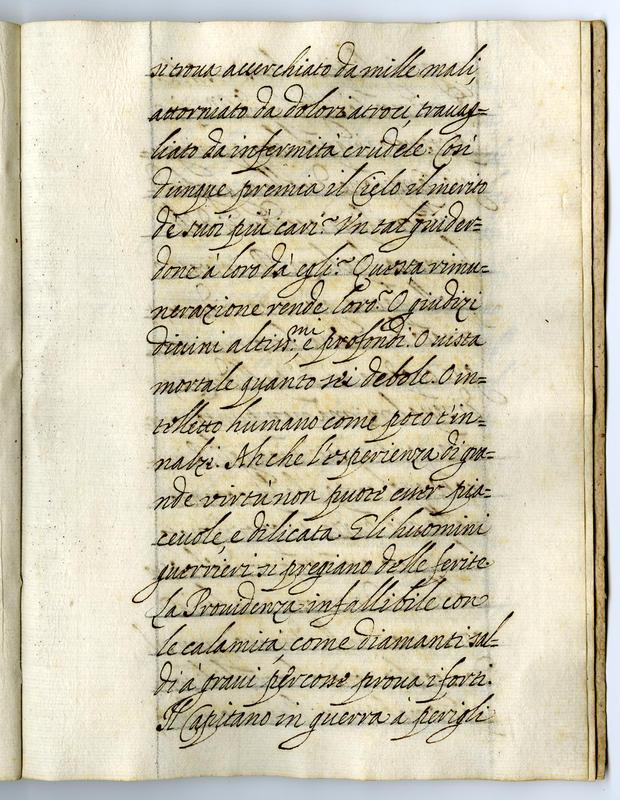 si troua accerchiato da mille mali,
attorniato da dolori atroci, trauag=
liato da infermità crudele. Così
dunque premia il Cielo il merito
de suoi più cari? Vn tal guider=
done à loro dà egli? Questa rimu=
nerazione rende loro? O giudizi
diuini altiss.mi, e profondi. O uista
mortale quanto sei debole. O in=
telletto humano come poco t'in=
nalzi. Ah che l'esperienza di gra=
nde uirtù non puote esser pia=
ceuole, e dilicata. Gli huomini
guerrieri si pregiano delle ferite
La Prouidenza infallibile con
le calamità, come diamanti sal=
di à graui percosse proua i forti.
Il Capitano in guerra à perigli